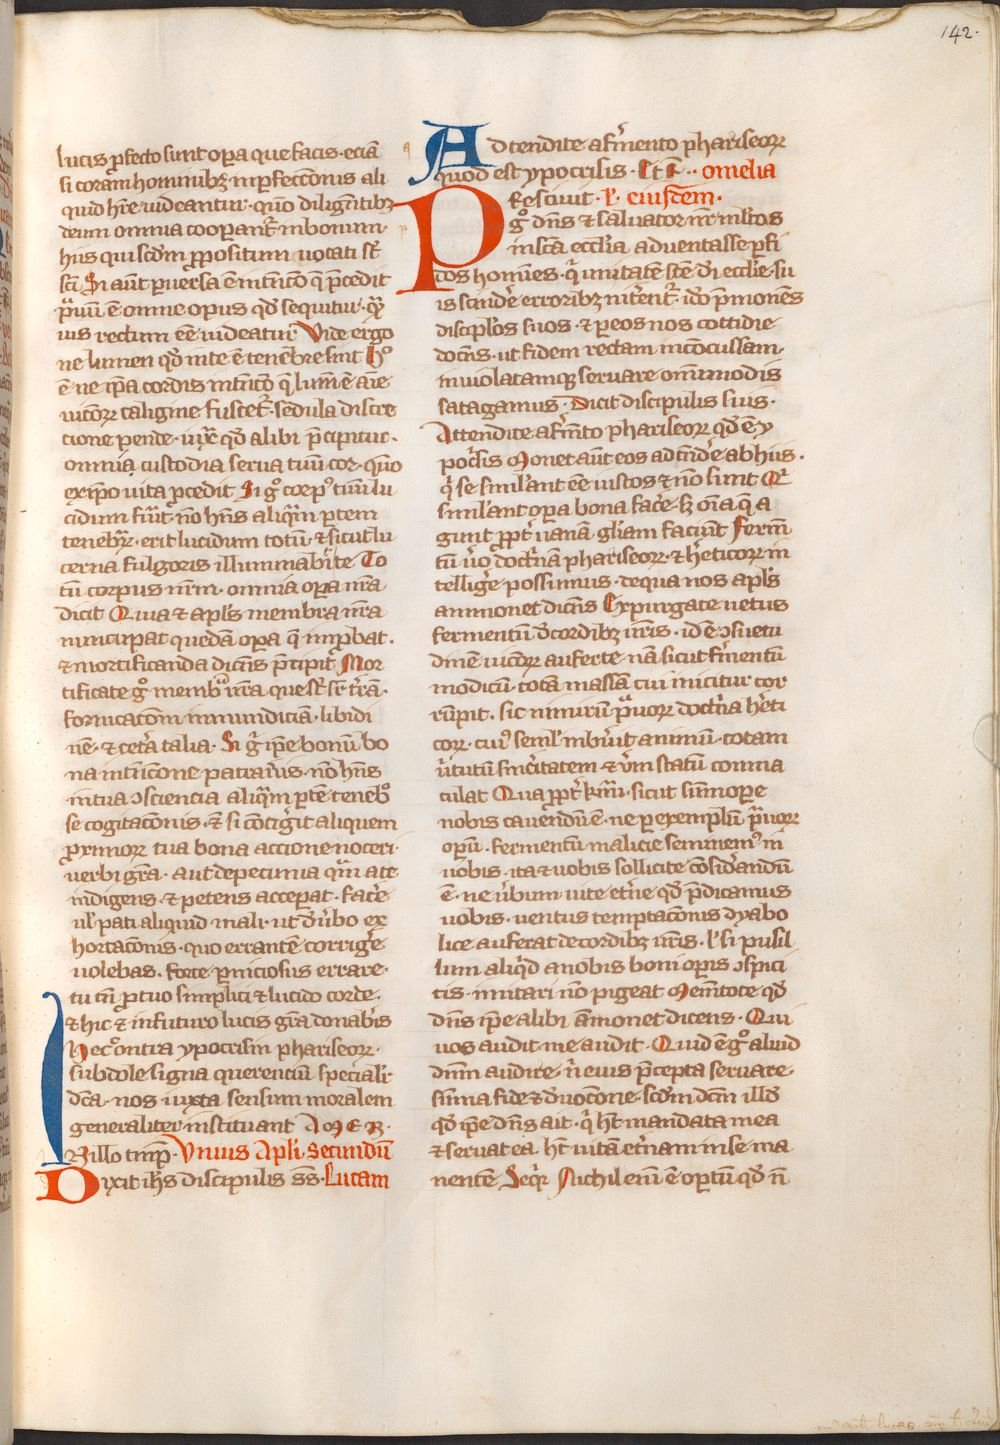 142.
lucis ꝑfecto sunt oꝑa que facis · eciā
si coram hominibꝫ inꝑfeccōnis ali
quid hr̄e uideantur · quō diligentibꝫ
deum omnia cooꝑant᷑ in bonum ·
hiis qui scd̄m ꝓpositum uocati st̄
scī Si aūt ꝑuersa ē intēcō que p̄cedit
prauū ē omne opus qd̄ sequitur · quā
uis rectum eē uideatur Vide ergo
ne lumen qd̄ in te ē tenebre sint Hoc
ē ne ip̄a cordis intēcō que lumē aīe
uicioꝝ caligine fuscet᷑ · sedula discre
cione pende · iuxᷓ qd̄ alibi p̄cipitur ·
omnia custodia serua tuū cor · quō
ex ip̄o uita ꝓcedit Si gͦ corpꝰ tuū lu
cidum fuīt · nō hn̄s aliqᷓm ꝑtem
tenebraꝝ · erit lucidum totū · ⁊ sicut lu
cerna fulgoris illuminabit te To
tū corpus nr̄m · omnia oꝑa nr̄a
dicit Quia ⁊ apl̄s membra nr̄a
nuncupat quedā oꝑa que inꝓbat ·
⁊ mortificanda dicens p̄cipit Mor
tificate gͦ membra nr̄a que st̄ sr̄ trā ·
fornicacōm inmundiciā · libidi
nē · ⁊ cetera talia · Si gͦ ip̄e bonū bo
na intencōne patraueris · nō hn̄s
in tua ɔsciencia aliqᷓm ꝑtē tenebro
se cogitacōnis · Et si cōtigerit aliquem
ꝓximoꝝ tua bona accione noceri ·
uerbi grā · aut de pecunia quam a te
indigens · ⁊ petens acceꝑat · facere
ul̄ pati aliquid mali · ut de uerbo ex
hortacōnis · quo errantē corrigere
uolebas · forte ꝑniciosius errare ·
tu tn̄ ꝑ tuo simplici ⁊ lucido corde ·
⁊ hic ⁊ in futuro lucis grā donaberis
Hec ɔntra ypocrisin phariseoꝝ ·
subdole signa querenciū speciali
dc̄a · nos iuxta sensum moralem
generaliter instituant A M E N
In illo tmp̄ · Vnius Apl̄i · Secundū
Dixit ih̄s discipulis ss̄ · Lucam
Adtendite a fermento phariseoꝝ
quod est ypocrisis · Et c̄ · · omelia
Resciuit · l̄ · eiusdem ·
Pgͦ dn̄s ⁊ saluator nr̄ multos
in scā ecclīa aduentasse ꝑfi
dos homīes · qui unitatē scē dei ecclīe su
is scindere erroribꝫ nitent᷑ · ido p̄monēs
discipl̄os suos · ⁊ ꝑ eos nos cottidie
docens · ut fidem rectam inconcussam ·
inuiolatamqꝫ seruare omnimodis
satagamus · Dicit discipulis suis ·
Attendite a fermēto phariseoꝝ qd̄ ē y
pocrisis Monet aūt eos adtendere ab hiis ·
qui se simulant eē iustos ⁊ nō sunt Qui
simulant oꝑa bona facere · sꝫ oīa que a
gunt ꝓpter uanā gliam faciunt Fermen
tū uero doctrinam phariseoꝝ · ⁊ hereticoꝝ in
telligere possumus · de qua nos apl̄s
ammonet dicens Expurgate uetus
fermentū de cordibꝫ ur̄is · id ē ɔsuetu
dinē uicioꝝ auferte · nā sicut fermentū
modicū · totā massā cui inicitur cor
rūpit · sic nimirū prauoꝝ doctrina hereti
coꝝ · cuiꝰ semel inbuerit animū · totam
uirtutū sinceritatem ⁊ ueritatis statū conma
culat Qua ꝓpter km̄i · sicut sūmopere
nobis cauendū ē · ne ꝑ exemplū prauoꝝ
operū · fermentū malicie seminemꝰ in
uobis · ita ⁊ uobis sollicite cōsiderandū
ē · ne uerbum uite eterne qd̄ p̄dicamus
uobis · uentus temptacōnis dyabo
lice auferat de cordibꝫ ur̄is · l̄ si pusil
lum aliquid a nobis boni oꝑis ɔspici
tis · imitari nō pigeat Mementote qd̄
dn̄s ip̄e alibi āmonet dicens · Qui
uos audit me audit · Quid ē gͦ aliud
dn̄m audire · nisi eius p̄cepta seruare ·
sūma fide ⁊ deuocōne · scd̄m dcm̄ illd̄
qd̄ ip̄e dn̄s ait · qui ht̄ mandata mea
⁊ seruat ea · ht̄ uitā eternam in se ma
nentē Seqr̄ Nichil enī ē oꝑtum qd̄ n̄